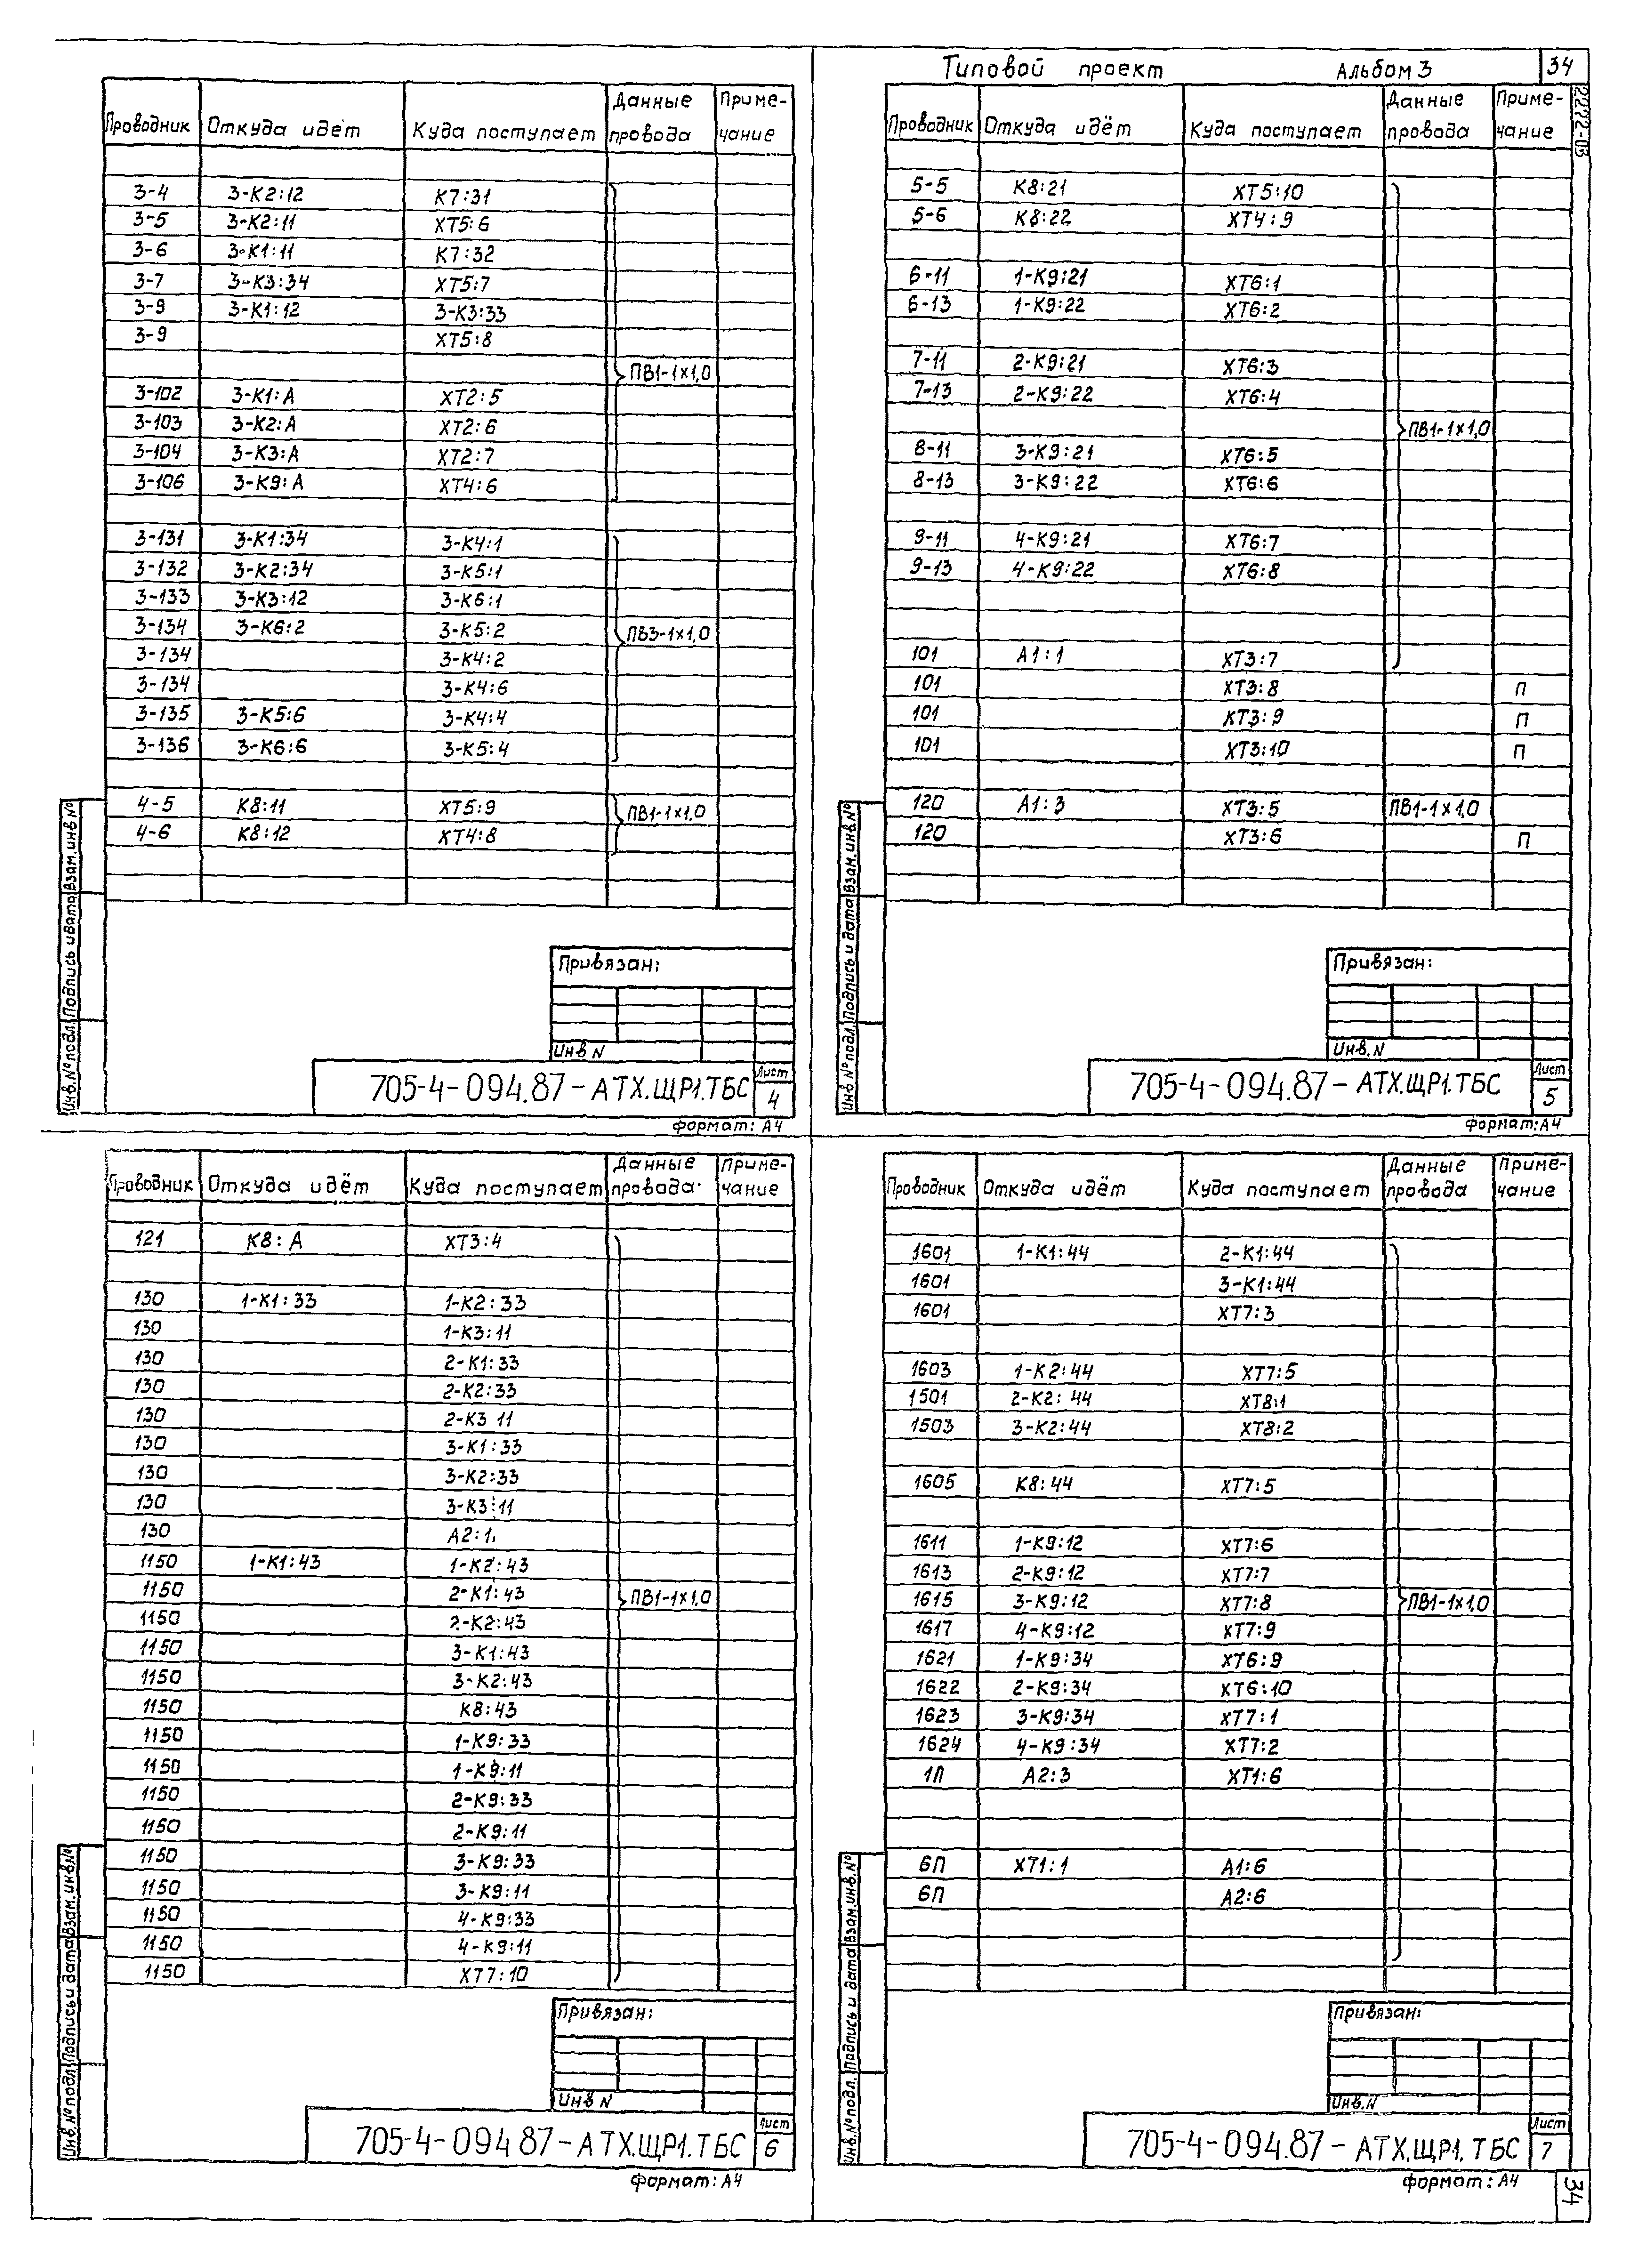 Типовой проект Альбом 3 34
2272-03
Проводник Откуда идёт Куда поступает Данные провода Приме-чание
3-4 3-К2:12 К7:31
3-5 3-К2:11 ХТ5:6
3-6 3-К1:11 К7:32
3-7 3-К3:34 ХТ5:7
3-9 3-К1:12 3-К3:33
3-9 ХТ5:8
ПВ1-1х1,0
3-102 3-К1:А ХТ2:5
3-103 3-К2:А ХТ2:6
3-104 3-К3:А ХТ2:7
3-106 3-К9:А ХТ4:6
3-131 3-К1:34 3-К4:1
3-132 3-К2:34 3-К5:1
3-133 3-К3:12 3-К6:1
3-134 3-К6:2 3-К5:2 ПВ3-1х1,0
3-134 3-К4:2
3-134 3-К4:6
3-135 3-К5:6 3-К4:4
3-136 3-К6:6 3-К5:4
4-5 К8:11 ХТ5:9 ПВ1-1х1,0
4-6 К8:12 ХТ4:8
Инв.№ подл. Подпись и дата Взам.инв.№
Привязан:
Инв N
705-4-094.87-АТХ.ЩР1.ТБС Лист 4
формат: А4
Проводник Откуда идёт Куда поступает Данные провода Приме-чание
5-5 К8:21 ХТ5:10
5-6 К8:22 ХТ4:9
6-11 1-К9:21 ХТ6:1
6-13 1-К9:22 ХТ6:2
7-11 2-К9:21 ХТ6:3
7-13 2-К9:22 ХТ6:4
ПВ1-1х1,0
8-11 3-К9:21 ХТ6:5
8-13 3-К9:22 ХТ6:6
9-11 4-К9:21 ХТ6:7
9-13 4-К9:22 ХТ6:8
101 А1:1 ХТ3:7
101 ХТ3:8 П
101 ХТ3:9 П
101 ХТ3:10 П
120 А1:3 ХТ3:5 ПВ1-1х1,0
120 ХТ3:6 П
Инв №подл. Подпись и дата Взам.инв.№
Привязан:
Инв.N
705-4-094.87-АТХ.ЩР1.ТБС Лист 5
формат:А4
Проводник Откуда идёт Куда поступает Данные провода Приме-чание
121 К8:А ХТ3:4
130 1-К1:33 1-К2:33
130 1-К3:11
130 2-К1:33
130 2-К2:33
130 2-К3 11
130 3-К1:33
130 3-К2:33
130 3-К3:11
130 А2:1
1150 1-К1:43 1-К2:43
1150 2-К1:43 ПВ1-1х1,0
1150 2-К2:43
1150 3-К1:43
1150 3-К2:43
1150 К8:43
1150 1-К9:33
1150 1-К9:11
1150 2-К9:33
1150 2-К9:11
1150 3-К9:33
1150 3-К9:11
1150 4-К9:33
1150 4-К9:11
1150 ХТ7:10
Инв №подл. Подпись и дата Взам.инв.№
Привязан:
Инв N
705-4-094 87-АТХ.ЩР1.ТБС Лист 6
формат: А4
Проводник Откуда идёт Куда поступает Данные провода Приме-чание
1601 1-К1:44 2-К1:44
1601 3-К1:44
1601 ХТ7:3
1603 1-К2:44 ХТ7:5
1501 2-К2:44 ХТ8:1
1503 3-К2:44 ХТ8:2
1605 К8:44 ХТ7:5
1611 1-К9:12 ХТ7:6
1613 2-К9:12 ХТ7:7
1615 3-К9:12 ХТ7:8 ПВ1-1х1,0
1617 4-К9:12 ХТ7:9
1621 1-К9:34 ХТ6:9
1622 2-К9:34 ХТ6:10
1623 3-К9:34 ХТ7:1
1624 4-К9:34 ХТ7:2
1П А2:3 ХТ1:6
6П ХТ1:1 А1:6
6П А2:6
Инв.№подл. Подпись и дата Взам.инв.№
Привязан:
Инв.N
705-4-094.87-АТХ.ЩР1.ТБС Лист 7
формат: А4
34